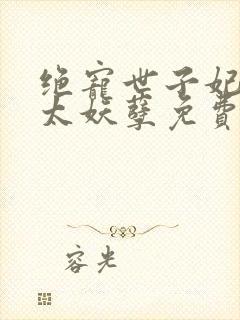 绝宠世子妃
太妖孽免費
容光